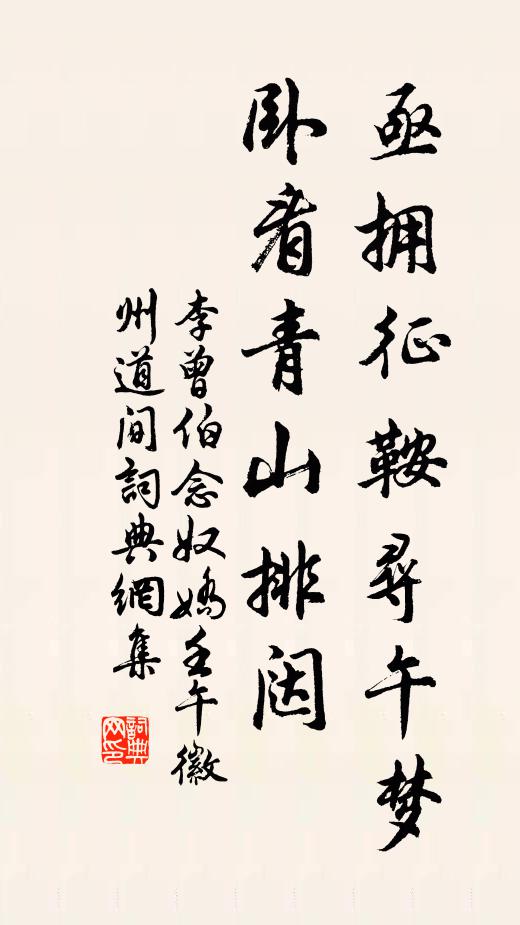 亟拥征鞍尋午梦
卧看青山排闼
李曾伯念奴嬌壬午徽
州道间詞典網集
詞典網印